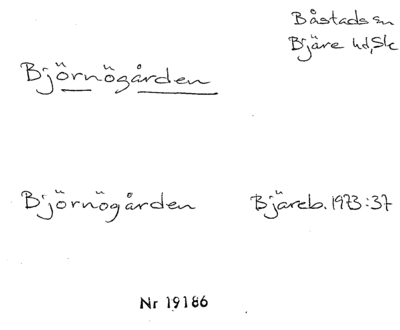 Båstads sn
Bjäre hd, Sk
Björnögården
Björnögården Bjäreb. 1973:37
Nr 19186